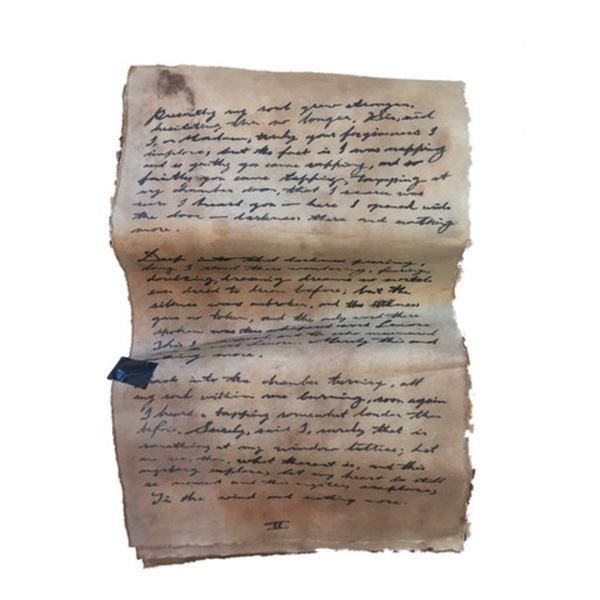 Presently my soul grew stronger,
hesitating then no longer, Sir, said
I, or Madam, truly your forgiveness I
implore; but the fact is I was napping
and so gently you came rapping, and so
faintly you came tapping, tapping at
my chamber door, that I scarce was
sure I heard you — here I opened wide
the door — darkness there and nothing
more.
Deep into that darkness peering,
long I stood there wondering, fearing,
doubting, dreaming dreams no mortal
ever dared to dream before; but the
silence was unbroken, and the stillness
gave no token, and the only word there
spoken was the whispered word Lenore
This I and an echo murmured
Merely this and
more.
into the chamber turning, all
my soul within me burning, soon again
I heard a tapping somewhat louder than
before. Surely, said I, surely that is
something at my window lattice; Let
me see, then, what thereat is, and this
mystery explore; let my heart be still
a moment and this mystery explore;
Tis the wind and nothing more.
II